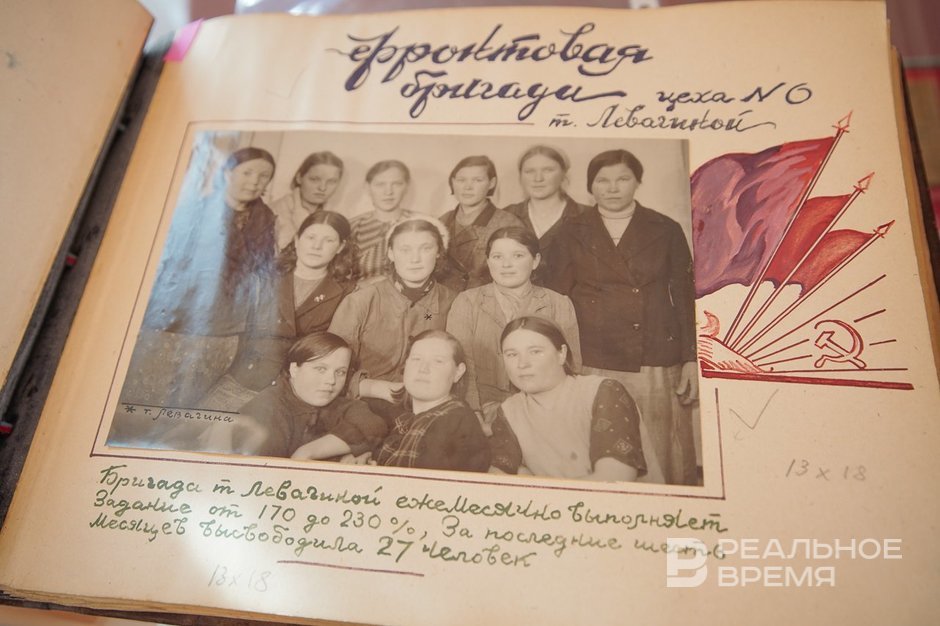 Фронтовая
бригада цеха № 6
т. Левагиной
* т. Левагина
Бригада т Левагиной ежемесячно выполняет
Задание от 170 до 230%, За последние шесть
месяцев высвободила 27 человек
13 x 18
13 x 18
РЕАЛЬНОЕ
ВРЕМЯ